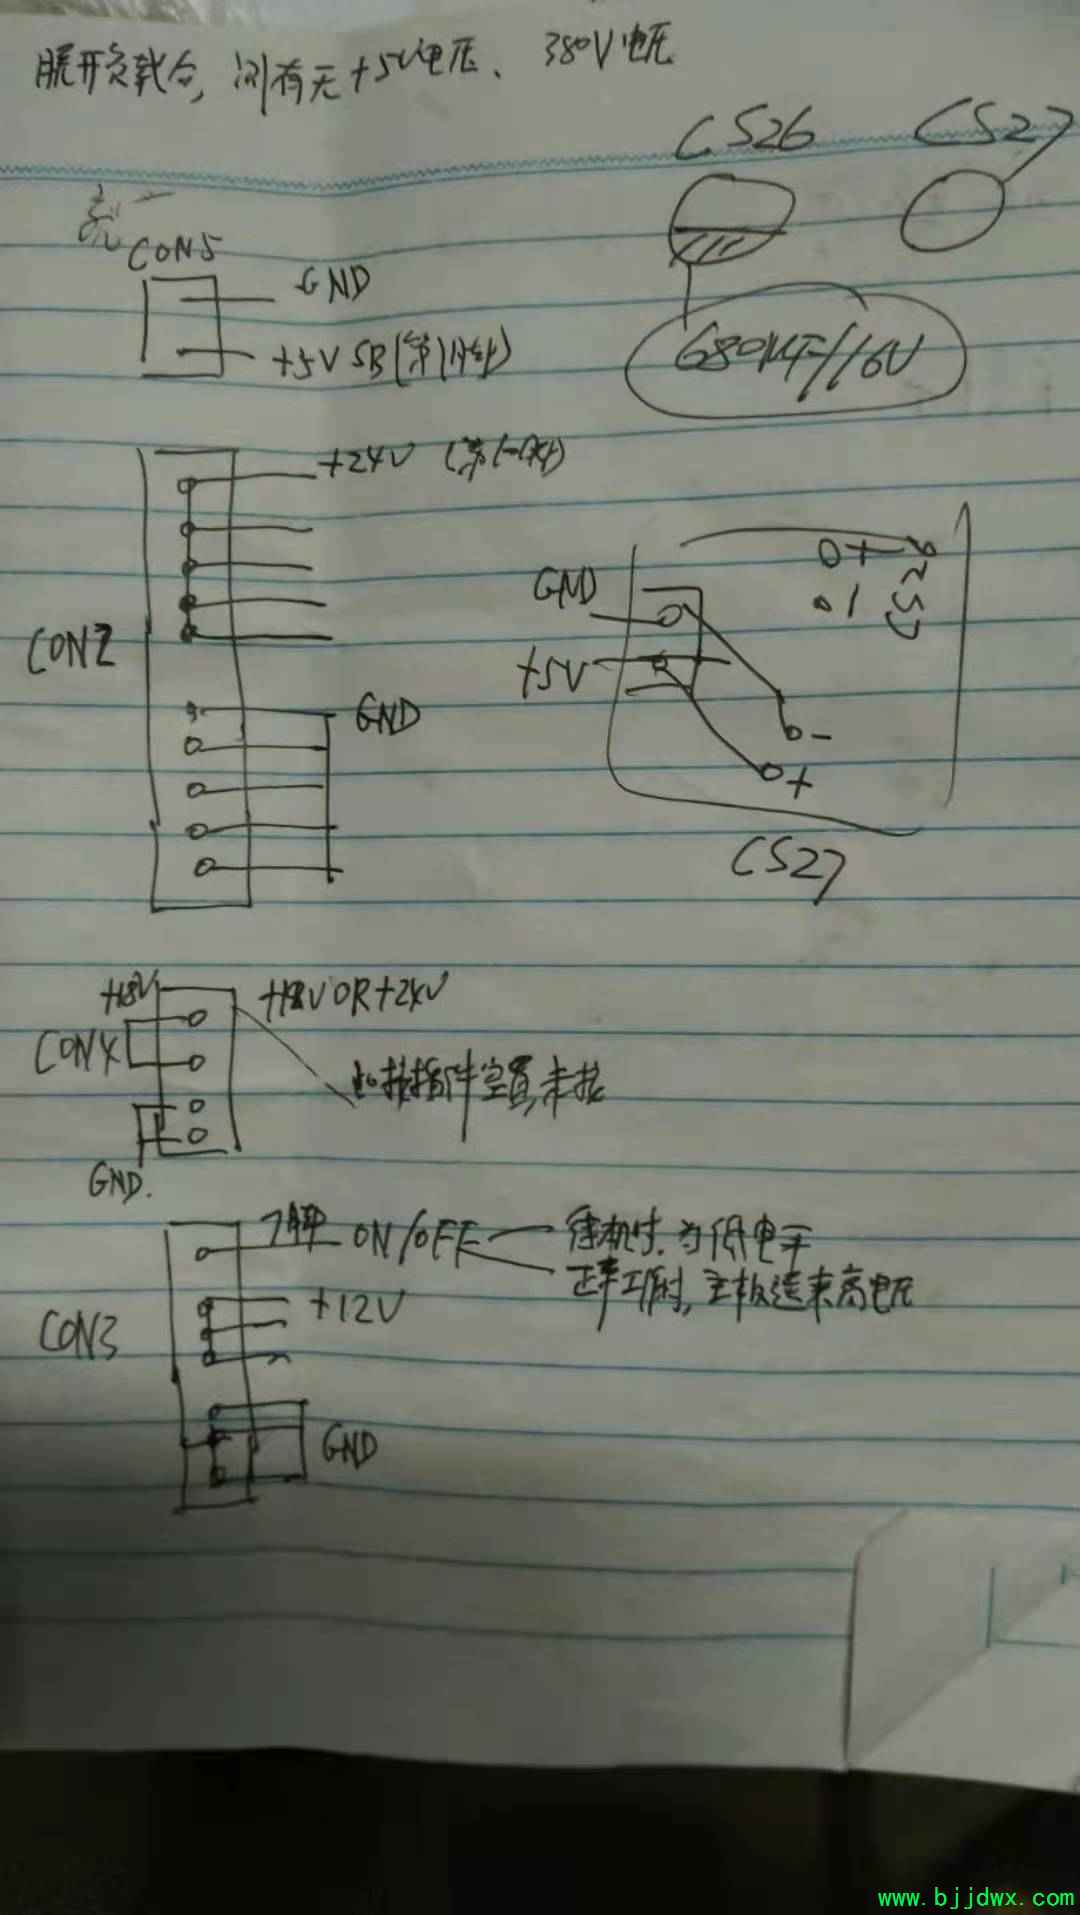 脱开负载台,测有无+5V电压、380V电压
CS26
CS27
CON5
GND
+5V SB(第1针)
680MF/16V
+24V
GND
+5V
CON2
GND
-
+
CS27
+18V
+18V OR +24V
CON4
插件空置,未接
GND.
ON/OFF
待机时.为低电平
正常工作时,主板送来高电压
+12V
CON3
GND
www.bjjdwx.com